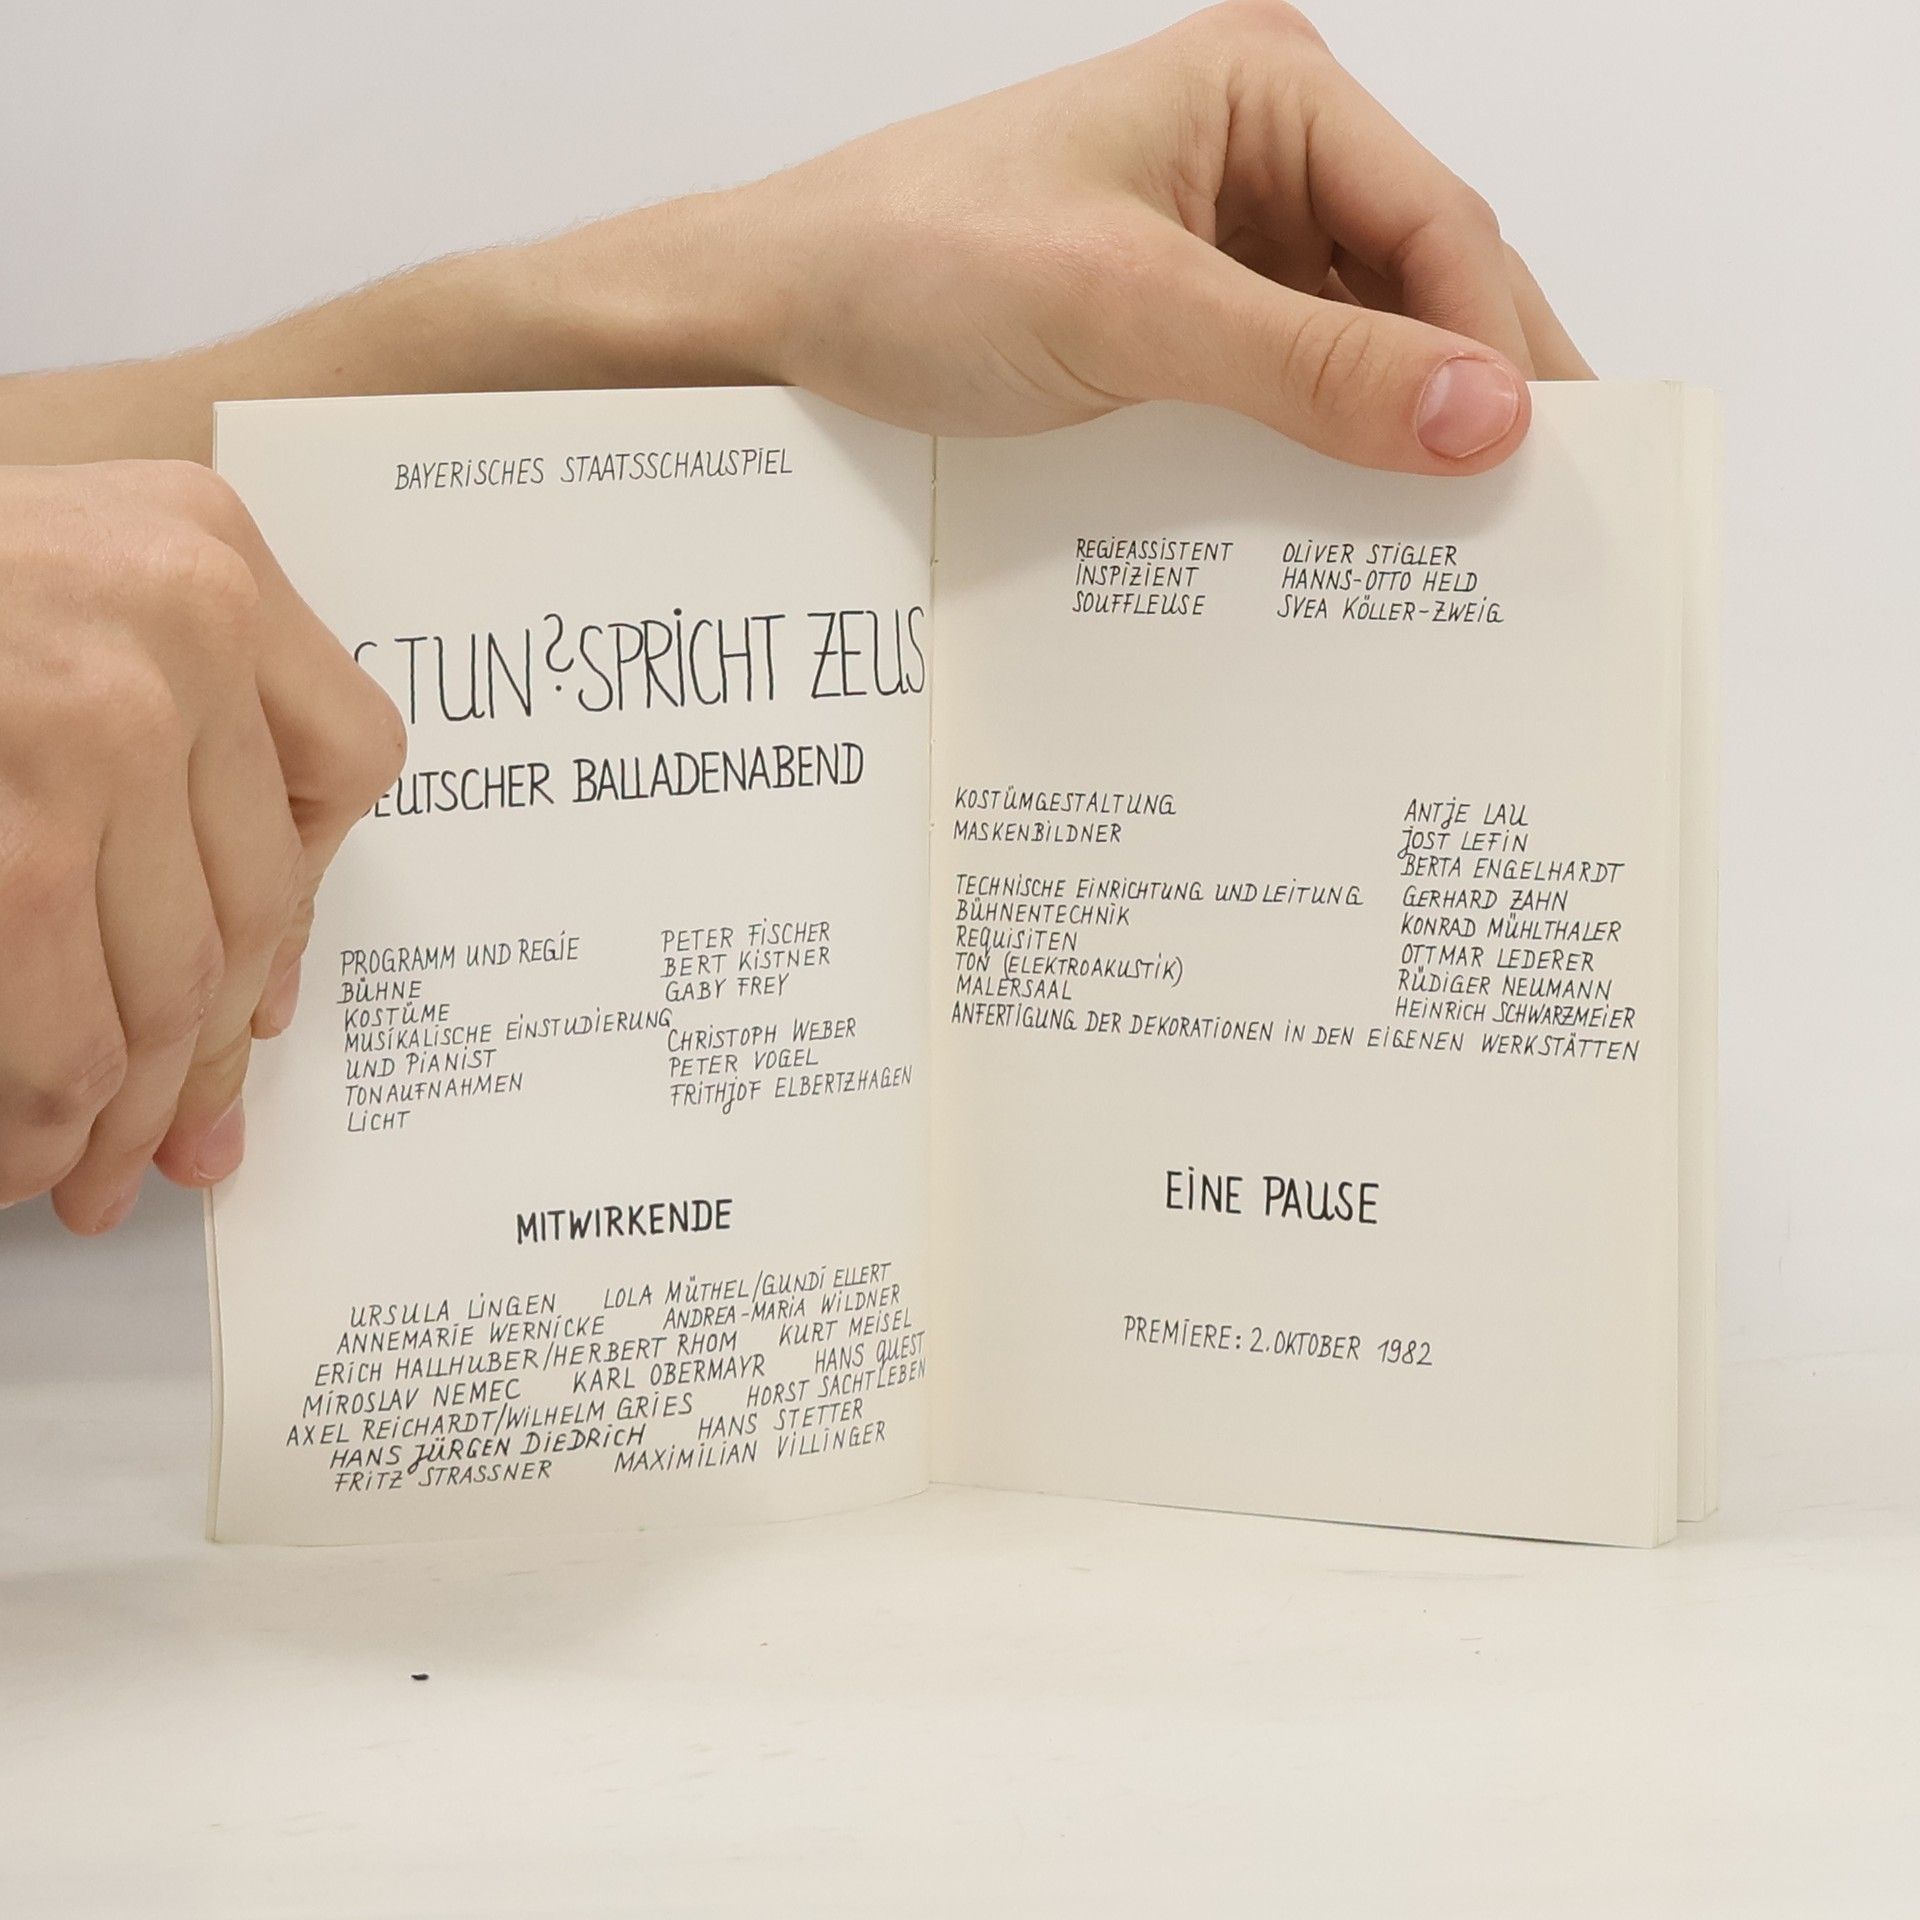 BAYERISCHES STAATSSCHAUSPIEL
TUN? SPRICHT ZEUS
DEUTSCHER BALLADENABEND
PROGRAMM UND REGIE PETER FISCHER
BÜHNE BERT KISTNER
KOSTÜME GABY FREY
MUSIKALISCHE EINSTUDIERUNG
UND PIANIST CHRISTOPH WEBER
TONAUFNAHMEN PETER VOGEL
LICHT FRITHJOF ELBERTZHAGEN
MITWIRKENDE
URSULA LINGEN LOLA MÜTHEL/GUNDI ELLERT
ANNEMARIE WERNICKE ANDREA-MARIA WILDNER
ERICH HALLHUBER/HERBERT RHOM KURT MEISEL
MIROSLAV NEMEC KARL OBERMAYR HANS QUEST
AXEL REICHARDT/WILHELM GRIES HORST SACHTLEBEN
HANS JÜRGEN DIEDRICH HANS STETTER
FRITZ STRASSNER MAXIMILIAN VILLINGER
REGIEASSISTENT OLIVER STIGLER
INSPIZIENT HANNS-OTTO HELD
SOUFFLEUSE SVEA KÖLLER-ZWEIG
KOSTÜMGESTALTUNG ANTJE LAU
MASKENBILDNER JOST LEFIN
BERTA ENGELHARDT
TECHNISCHE EINRICHTUNG UND LEITUNG GERHARD ZAHN
BÜHNENTECHNIK KONRAD MÜHLTHALER
REQUISITEN OTTMAR LEDERER
TON (ELEKTROAKUSTIK) RÜDIGER NEUMANN
MALERSAAL HEINRICH SCHWARZMEIER
ANFERTIGUNG DER DEKORATIONEN IN DEN EIGENEN WERKSTÄTTEN
EINE PAUSE
PREMIERE: 2. OKTOBER 1982